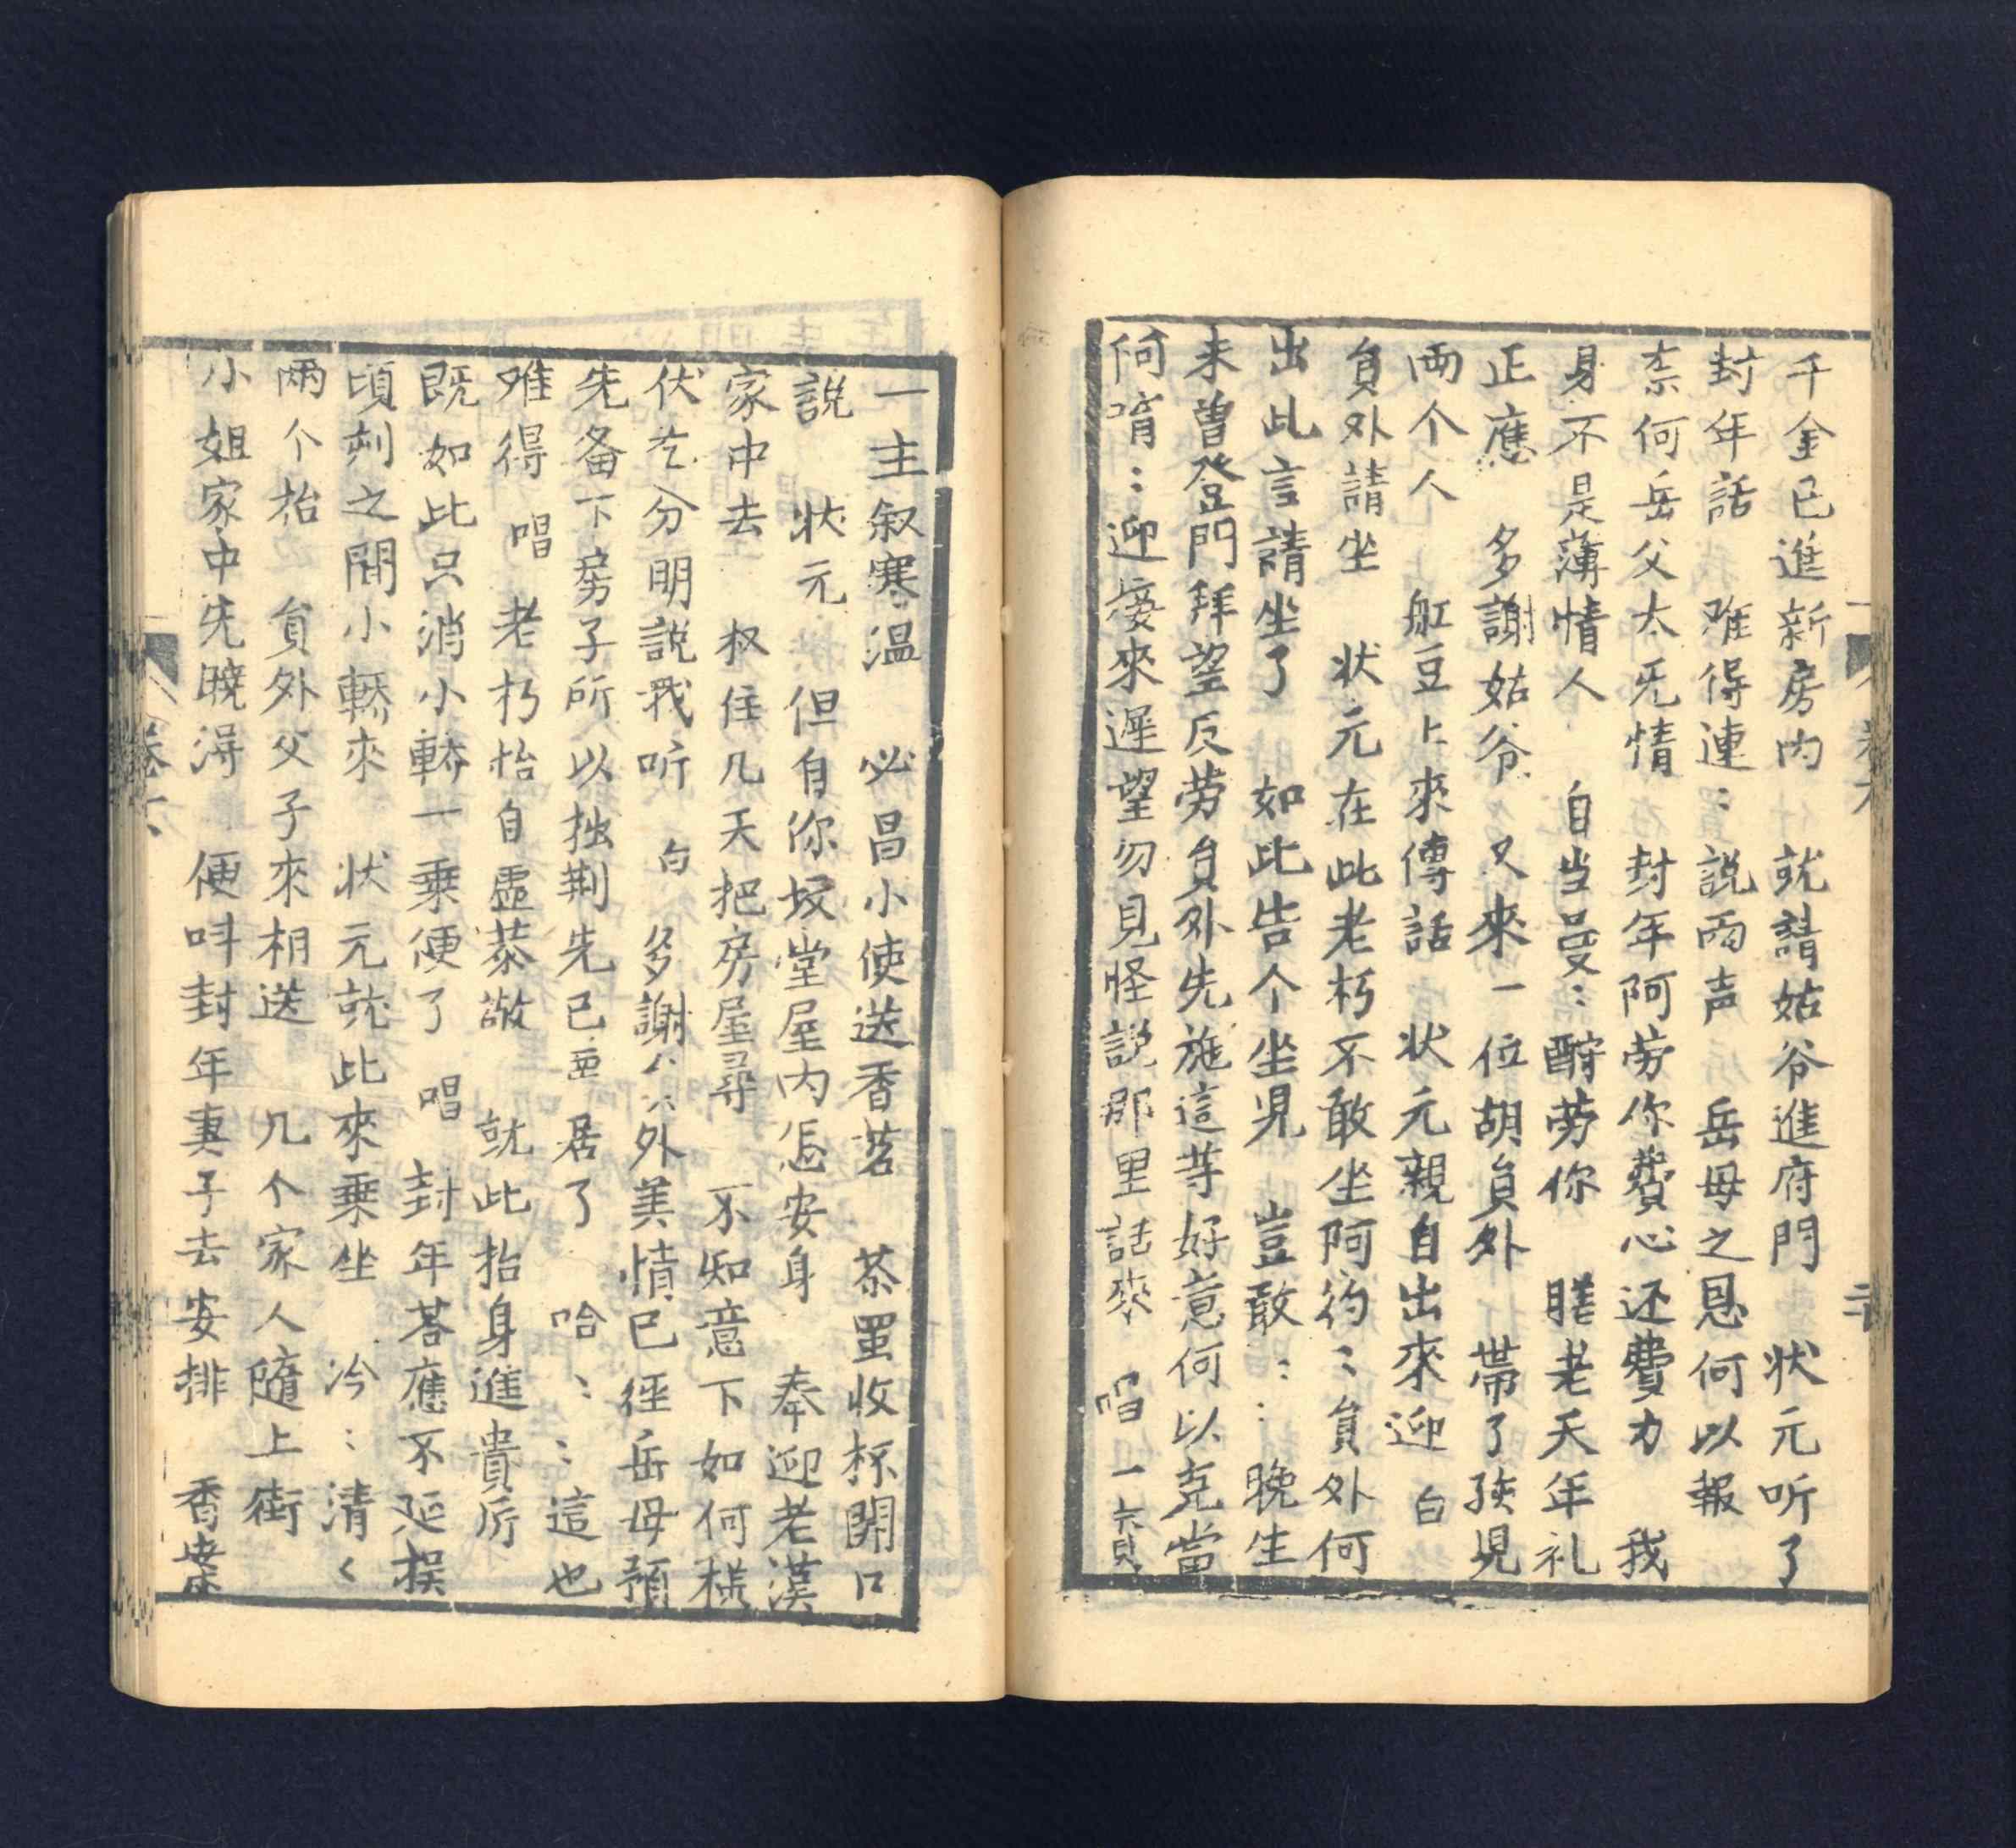 千金已進新房内　就請姑爷進府門　状元听了
封年話　难得連〻説两声　岳母之恩何以報
柰何岳父太旡情　封年阿劳你費心还費力　我
身不是薄情人　自当曼〻酧劳你　膳老天年礼
正應　多謝姑爷　又來一位胡貟外　帯了孩児
两个人　舡豆上來傳話　状元親自出來迎　白
貟外請坐　状元在此老朽不敢坐阿約〻貟外何
出此言請坐了　如此告个坐児　豈敢〻〻晚生
未曽登門拜望反劳貟外先施這等好意何以克當
何啃〻迎接來遲望勿見怪説那里話來　唱　一賔
一主叙寒温　必昌小使送香茗　茶罢收杯開口
説　状元　但自你坟堂屋内怎安身　奉迎老漢
家中去　权住几天把房屋尋　不知意下如何様
伏乞分明説我听　白　多謝　外美情已徑岳母預
先备下房子所以拙荆先已　居了　哈〻〻這也
难得　唱　老朽怡自虚恭敬　就此抬身進貴所
既如此只消小轎一乗便了　唱　封年荅應不延挨
頃刻之間小轎來　状元就此來乗坐　冷〻清〻
两个抬　貟外父子來相送　几个家人隨上街
小姐家中先曉得　便呌封年妻子去安排　香案
卷六
卷六